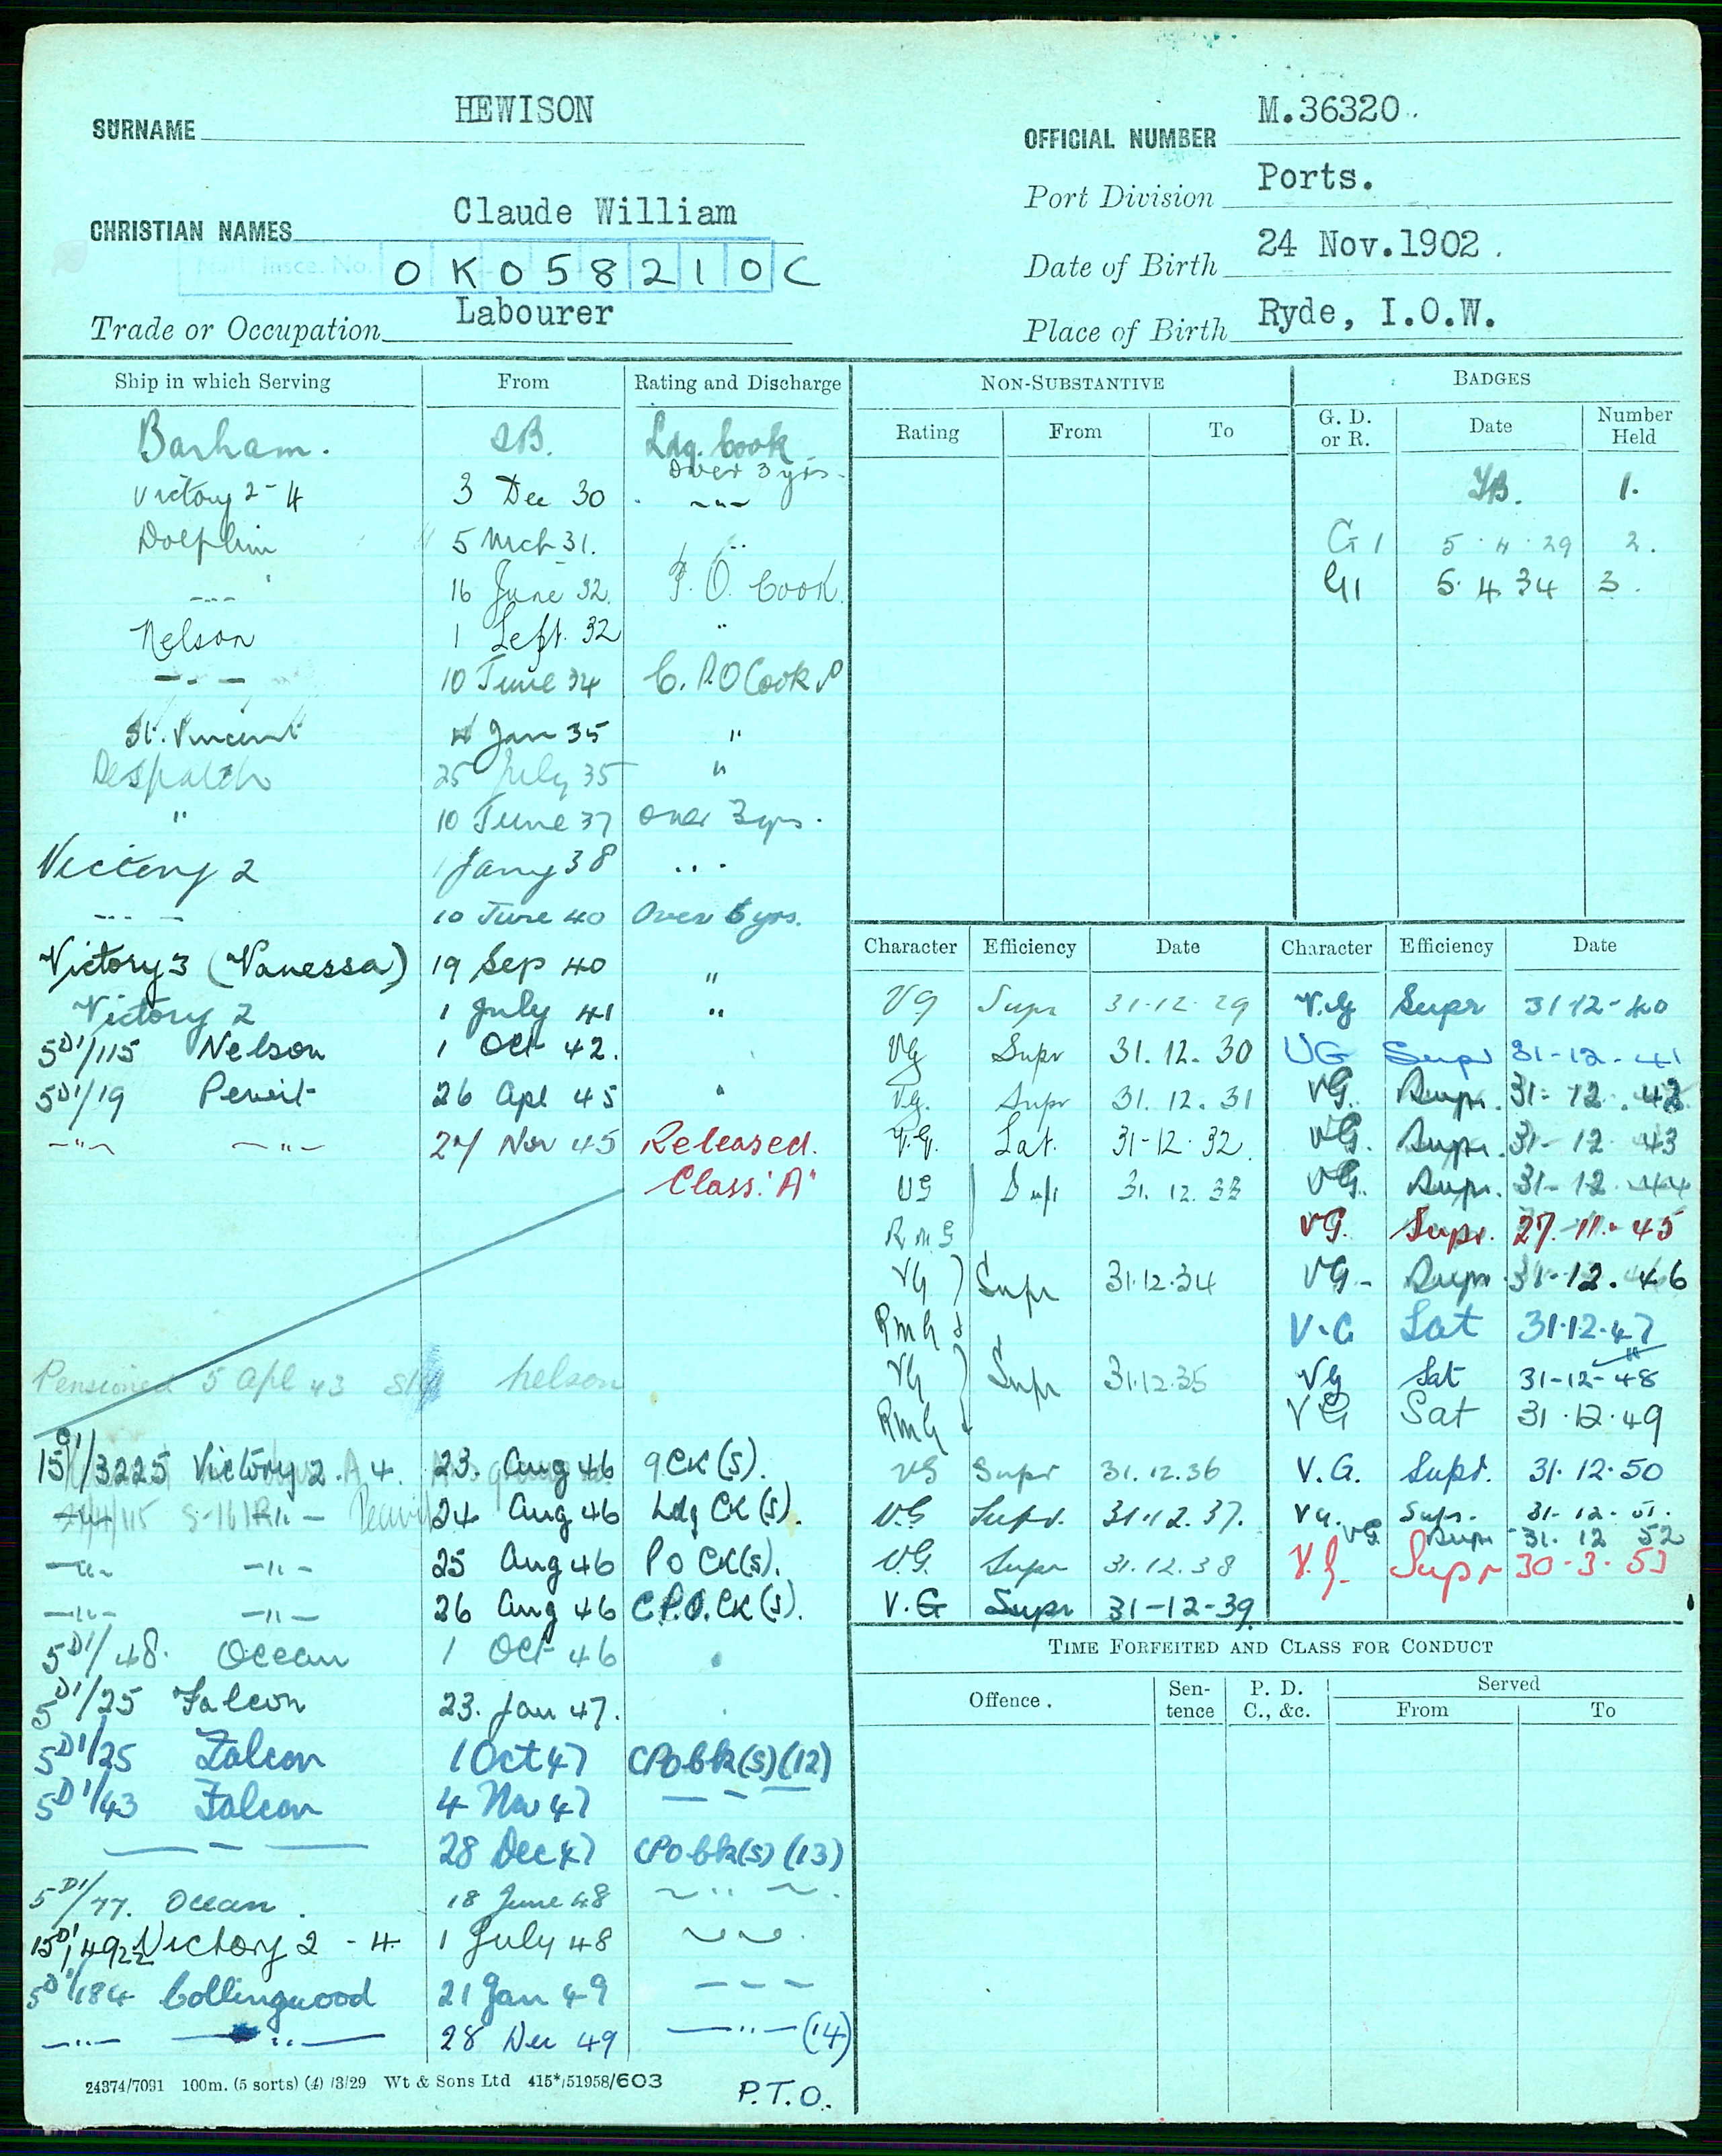 HEWISON
SURNAME
M.36320.
OFFICIAL NUMBER
Ports.
Port Division
Claude William
CHRISTIAN NAMES
24 Nov.1902.
Date of Birth
Insce. No. O K 0 5 8 2 1 0 C
Labourer
Trade or Occupation
Ryde, I.O.W.
Place of Birth
Ship in which Serving From Rating and Discharge
Barham. Ldg. Cook
over 3 yrs.
Victory 2-4 3 Dec 30 -"-
Dolphin 5 Mch 31. "
-"- 16 June 32. P.O. Cook.
Nelson 1 Sept. 32 "
-"- 10 June 34 C.P.O Cook
St. Vincent 4 Jan 35 "
Despatch 25 July 35 "
" 10 June 37 over 3 yrs.
Victory 2 1 Jany 38 "
-"- 10 June 40 Over 6 yrs.
Victory 3 (Vanessa) 19 Sep 40 "
Victory 2 1 July 41 "
5D1/115 Nelson 1 Oct 42.
5D1/19 Pewit 26 Apl 45 "
-"- -"- 27 Nov 45 Released.
Class "A"
Pensioned 5 Apl 43 Nelson
15D1/3225 Victory 2. A 4. 23. Aug 46 CK (S).
24 Aug 46 Ldg CK (S).
-"- -"- 25 Aug 46 PO CK(S).
-"- -"- 26 Aug 46 C.P.O. CK (S).
5D1/48. Ocean 1 Oct 46 "
5D1/25 Falcon 23. Jan 47.
5D1/25 Falcon 1 Oct 47 CPO Ck(S) (12)
5D1/43 Falcon 4 Nov 47 - - -
28 Dec 47 CPO Ck(S) (13)
5D1/77. Ocean. 18 June 48 -"-
15D1/4922 Victory 2 - 4 1 July 48
5D1/184 Collingwood 21 Jan 49 - - -
-"- -"- 28 Dec 49 -"- (14)
24374/7091 100m. (5 sorts) (4) /3/29 Wt & Sons Ltd 415*/51958/603
P.T.O.
NON-SUBSTANTIVE
Rating From To
BADGES
G. D. or R. Date Number Held
1.
G 1 5.4.29 2.
G1 5.4.34 3.
Character Efficiency Date
VG Supr 31-12-29
VG Supr 31.12.30
VG. Supr 31.12.31
V.G. Sat. 31-12.32.
VG Supr 31.12.33
RMG
VG Supr 31.12.34
RMG
VG Supr 31.12.35
RMG
VG Supr 31.12.36
V.G Supr. 31.12.37.
V.G. Supr 31.12.38
V.G Supr 31-12-39
Character Efficiency Date
V.G Supr 31-12-40
VG Supr 31-12-41
VG. Supr. 31-12.42
VG. Supr. 31-12 43
VG. Supr. 31-12 44
VG. Supr. 27.11.45
VG- Supr. 31-12.46
V.G Sat 31.12.47
VG Sat 31-12-48
VG Sat 31.12.49
V.G. Supr. 31.12.50
VG. Supr. 31-12-51.
VG Supr 31.12 52
V.G- Supr 30-3-53
TIME FORFEITED AND CLASS FOR CONDUCT
Offence. Sentence P. D. C., &c. Served
From To